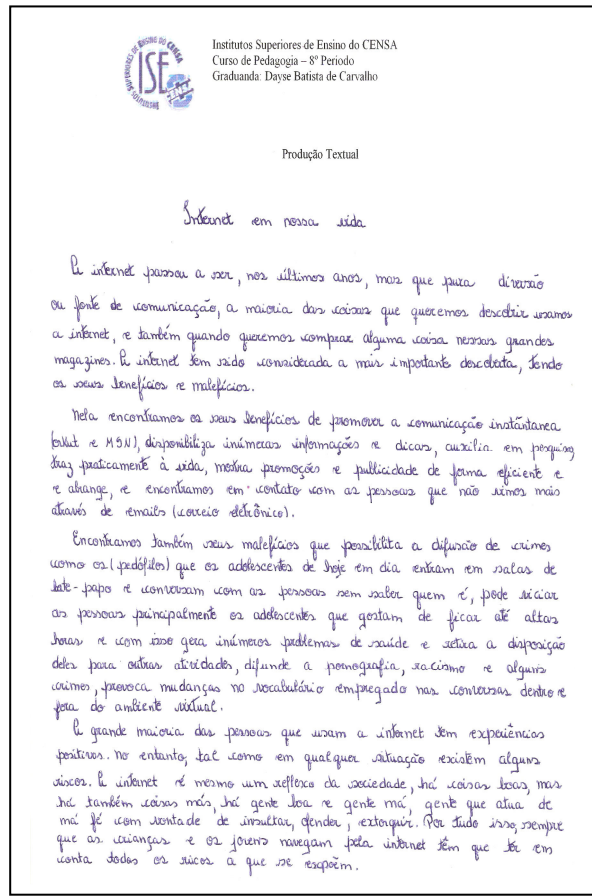 INSTITUTOS SUPERIORES DE ENSINO DO CENSA
ISE
Institutos Superiores de Ensino do CENSA
Curso de Pedagogia – 8º Periodo
Graduanda: Dayse Batista de Carvalho
Produção Textual
Internet em nossa vida
A internet passou a ser, nos últimos anos, mas que pura diversão
ou fonte de comunicação, a maioria das coisas que queremos descobrir usamos
a internet, e também quando queremos comprar alguma coisa nessas grandes
magazines. A internet tem sido considerada a mais importante descobata, tendo
os seus benefícios e malefícios.
Nela encontramos os seus benefícios de promover a comunicação instantanea
(orkut e MSN), disponibiliza inúmeras informações e dicas, auxilia em pesquisas,
traz praticamente à vida, mostra promoções e publicidade de forma eficiente e
e abrange, e encontramos em contato com as pessoas que não vimos mais
através de emails (correio eletrônico).
Encontramos também seus malefícios que possibilita a difusão de crimes
como os (pedófilos) que os adolescentes de hoje em dia entram em salas de
bate-papo e conversam com as pessoas sem saber quem é, pode viciar
as pessoas principalmente os adolescentes que gostam de ficar até altas
horas e com isso gera inúmeros problemas de saúde e retira a disposição
deles para outras atividades, difunde a pornografia, racismo e alguns
crimes, provoca mudanças no vocabulário empregado nas conversas dentro e
fora do ambiente virtual.
A grande maioria das pessoas que usam a internet tem experiências
positivos. no entanto, tal como em qualquer situação existem alguns
riscos. A internet é mesmo um reflexo da sociedade, há coisas boas, mas
há também coisas más, há gente boa e gente má, gente que atua de
má fé com vontade de insultar, ofender, extorquir. Por tudo isso, sempre
que as crianças e os jovens navegam pela internet têm que ter em
conta todos os riscos a que se expõem.